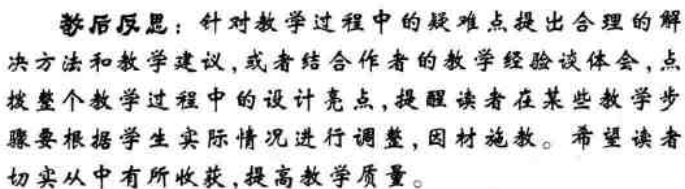 教后反思：针对教学过程中的疑难点提出合理的解
决方法和教学建议,或者结合作者的教学经验谈体会,点
拨整个教学过程中的设计亮点,提醒读者在某些教学步
骤要根据学生实际情况进行调整,因材施教。希望读者
切实从中有所收获,提高教学质量。